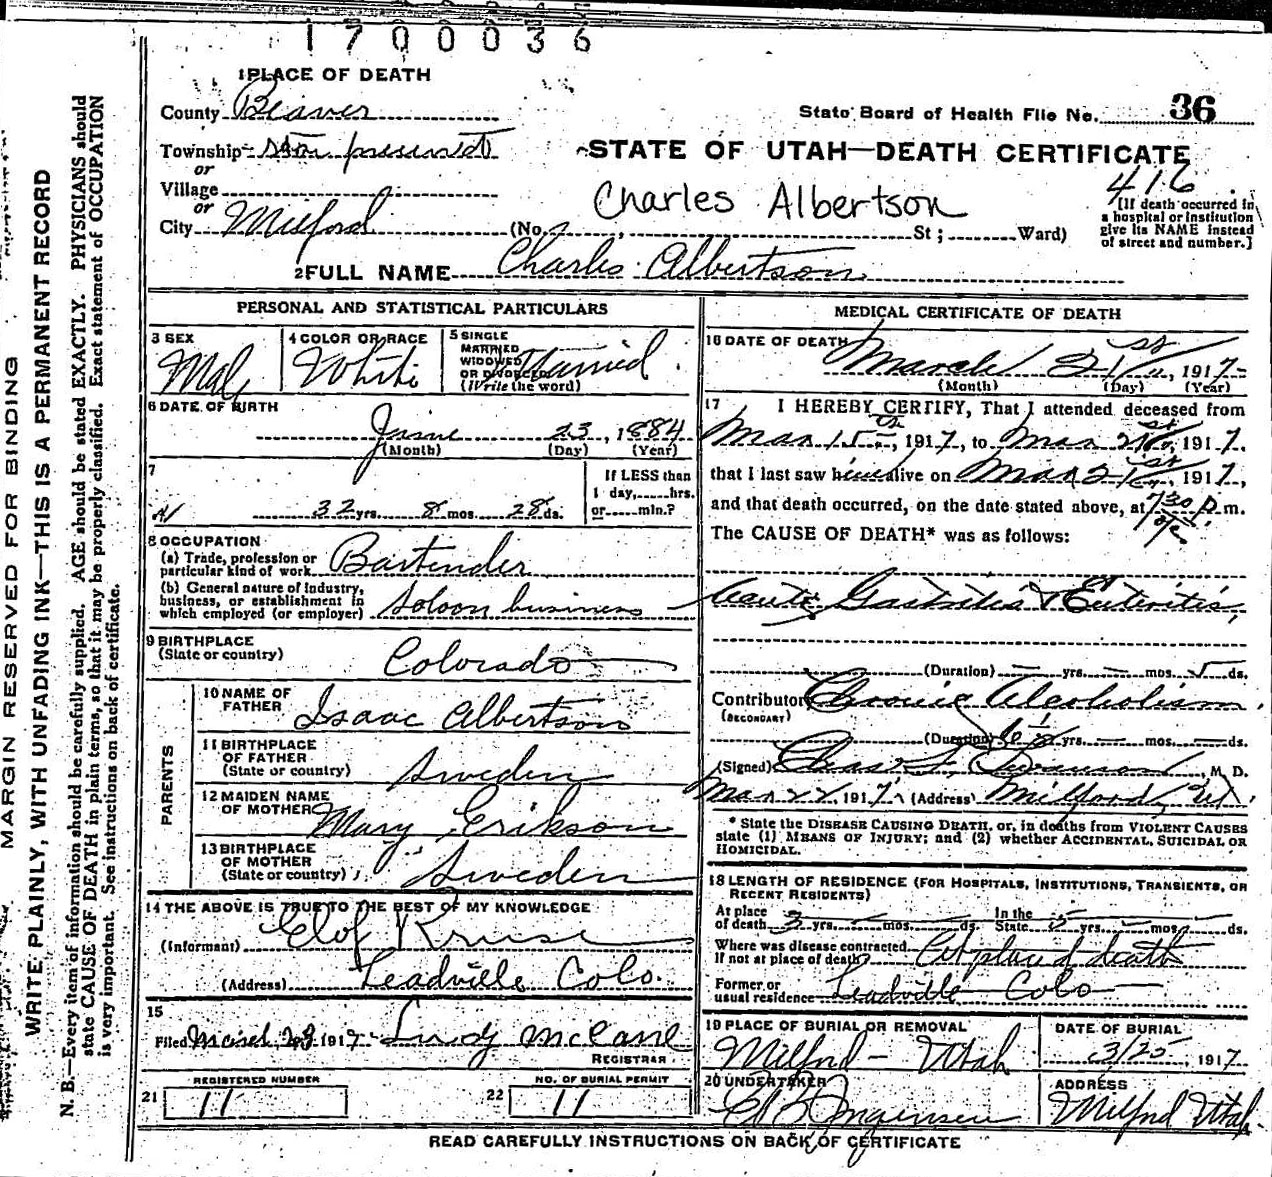 1700036
1 PLACE OF DEATH
County Beaver
State Board of Health File No. 36
Township
or
STATE OF UTAH—DEATH CERTIFICATE
Village
or
Charles Albertson
416
City Milford (No. , St; Ward)
[If death occurred in
a hospital or institution
give its NAME instead
of street and number.]
2 FULL NAME Charles Albertson
PERSONAL AND STATISTICAL PARTICULARS
3 SEX
Male
4 COLOR OR RACE
White
5 SINGLE
MARRIED
WIDOWED
OR DIVORCED
(Write the word)
Married
6 DATE OF BIRTH
June 23, 1884
(Month) (Day) (Year)
7
32 yrs. 8 mos. 28 ds.
If LESS than
1 day, hrs.
or min.?
8 OCCUPATION
(a) Trade, profession or
particular kind of work Bartender
(b) General nature of industry,
business, or establishment in
which employed (or employer) Soloon business
9 BIRTHPLACE
(State or country) Colorado
PARENTS
10 NAME OF
FATHER Isaac Albertson
11 BIRTHPLACE
OF FATHER
(State or country) Sweden
12 MAIDEN NAME
OF MOTHER Mary Erikson
13 BIRTHPLACE
OF MOTHER
(State or country) Sweden
14 THE ABOVE IS TRUE TO THE BEST OF MY KNOWLEDGE
(Informant) Elof Kruse
(Address) Leadville Colo.
15
Filed March 23 1917 McCane
REGISTRAR
REGISTERED NUMBER
21 11
NO. OF BURIAL PERMIT
22 11
MEDICAL CERTIFICATE OF DEATH
16 DATE OF DEATH
March 21st, 1917
(Month) (Day) (Year)
17 I HEREBY CERTIFY, That I attended deceased from
Mar 15th, 1917, to Mar 21st, 1917.
that I last saw him alive on Mar 21st, 1917,
and that death occurred, on the date stated above, at 7:30 P. m.
The CAUSE OF DEATH* was as follows:
Acute Gastritis & Enteritis,
(Duration) — yrs. — mos. 5 ds.
Contributory Chronic Alcoholism.
(SECONDARY)
(Duration) yrs. — mos. — ds.
(Signed) Chas. Swanson, M. D.
Mar 22, 1917 (Address) Milford, Ut.
* State the DISEASE CAUSING DEATH, or, in deaths from VIOLENT CAUSES
state (1) MEANS OF INJURY; and (2) whether ACCIDENTAL, SUICIDAL OR
HOMICIDAL.
18 LENGTH OF RESIDENCE (FOR HOSPITALS, INSTITUTIONS, TRANSIENTS, OR
RECENT RESIDENTS)
At place
of death 3 yrs. mos. ds.
In the
State 5 yrs. mos. ds.
Where was disease contracted
If not at place of death? At place of death
Former or
usual residence Leadville Colo
19 PLACE OF BURIAL OR REMOVAL
Milford - Utah
DATE OF BURIAL
3/25, 1917
20 UNDERTAKER
Jorgensen
ADDRESS
Milford Utah
READ CAREFULLY INSTRUCTIONS ON BACK OF CERTIFICATE
MARGIN RESERVED FOR BINDING
WRITE PLAINLY, WITH UNFADING INK—THIS IS A PERMANENT RECORD
N. B.—Every item of information should be carefully supplied. AGE should be stated EXACTLY. PHYSICIANS should
state CAUSE OF DEATH in plain terms, so that it may be properly classified. Exact statement of OCCUPATION
is very important. See instructions on back of certificate.